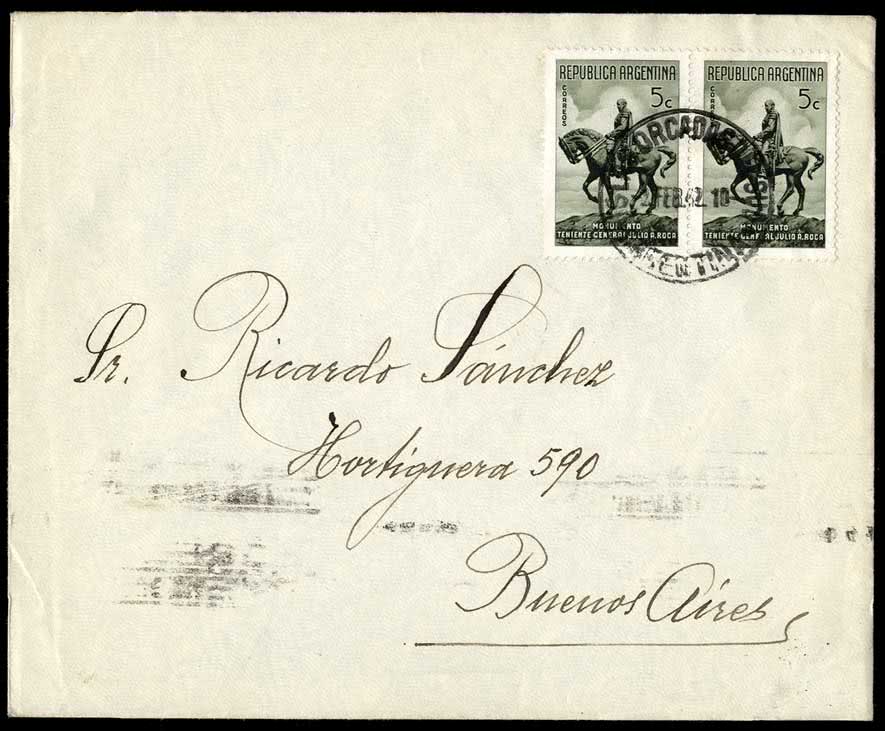 REPUBLICA ARGENTINA
CORREOS
5c
MONUMENTO
TENIENTE GENERAL JULIO A. ROCA
REPUBLICA ARGENTINA
CORREOS
5c
MONUMENTO
TENIENTE GENERAL JULIO A. ROCA
FEB.42.10
Sr. Ricardo Sánchez
Hortiguera 590
Buenos Aires